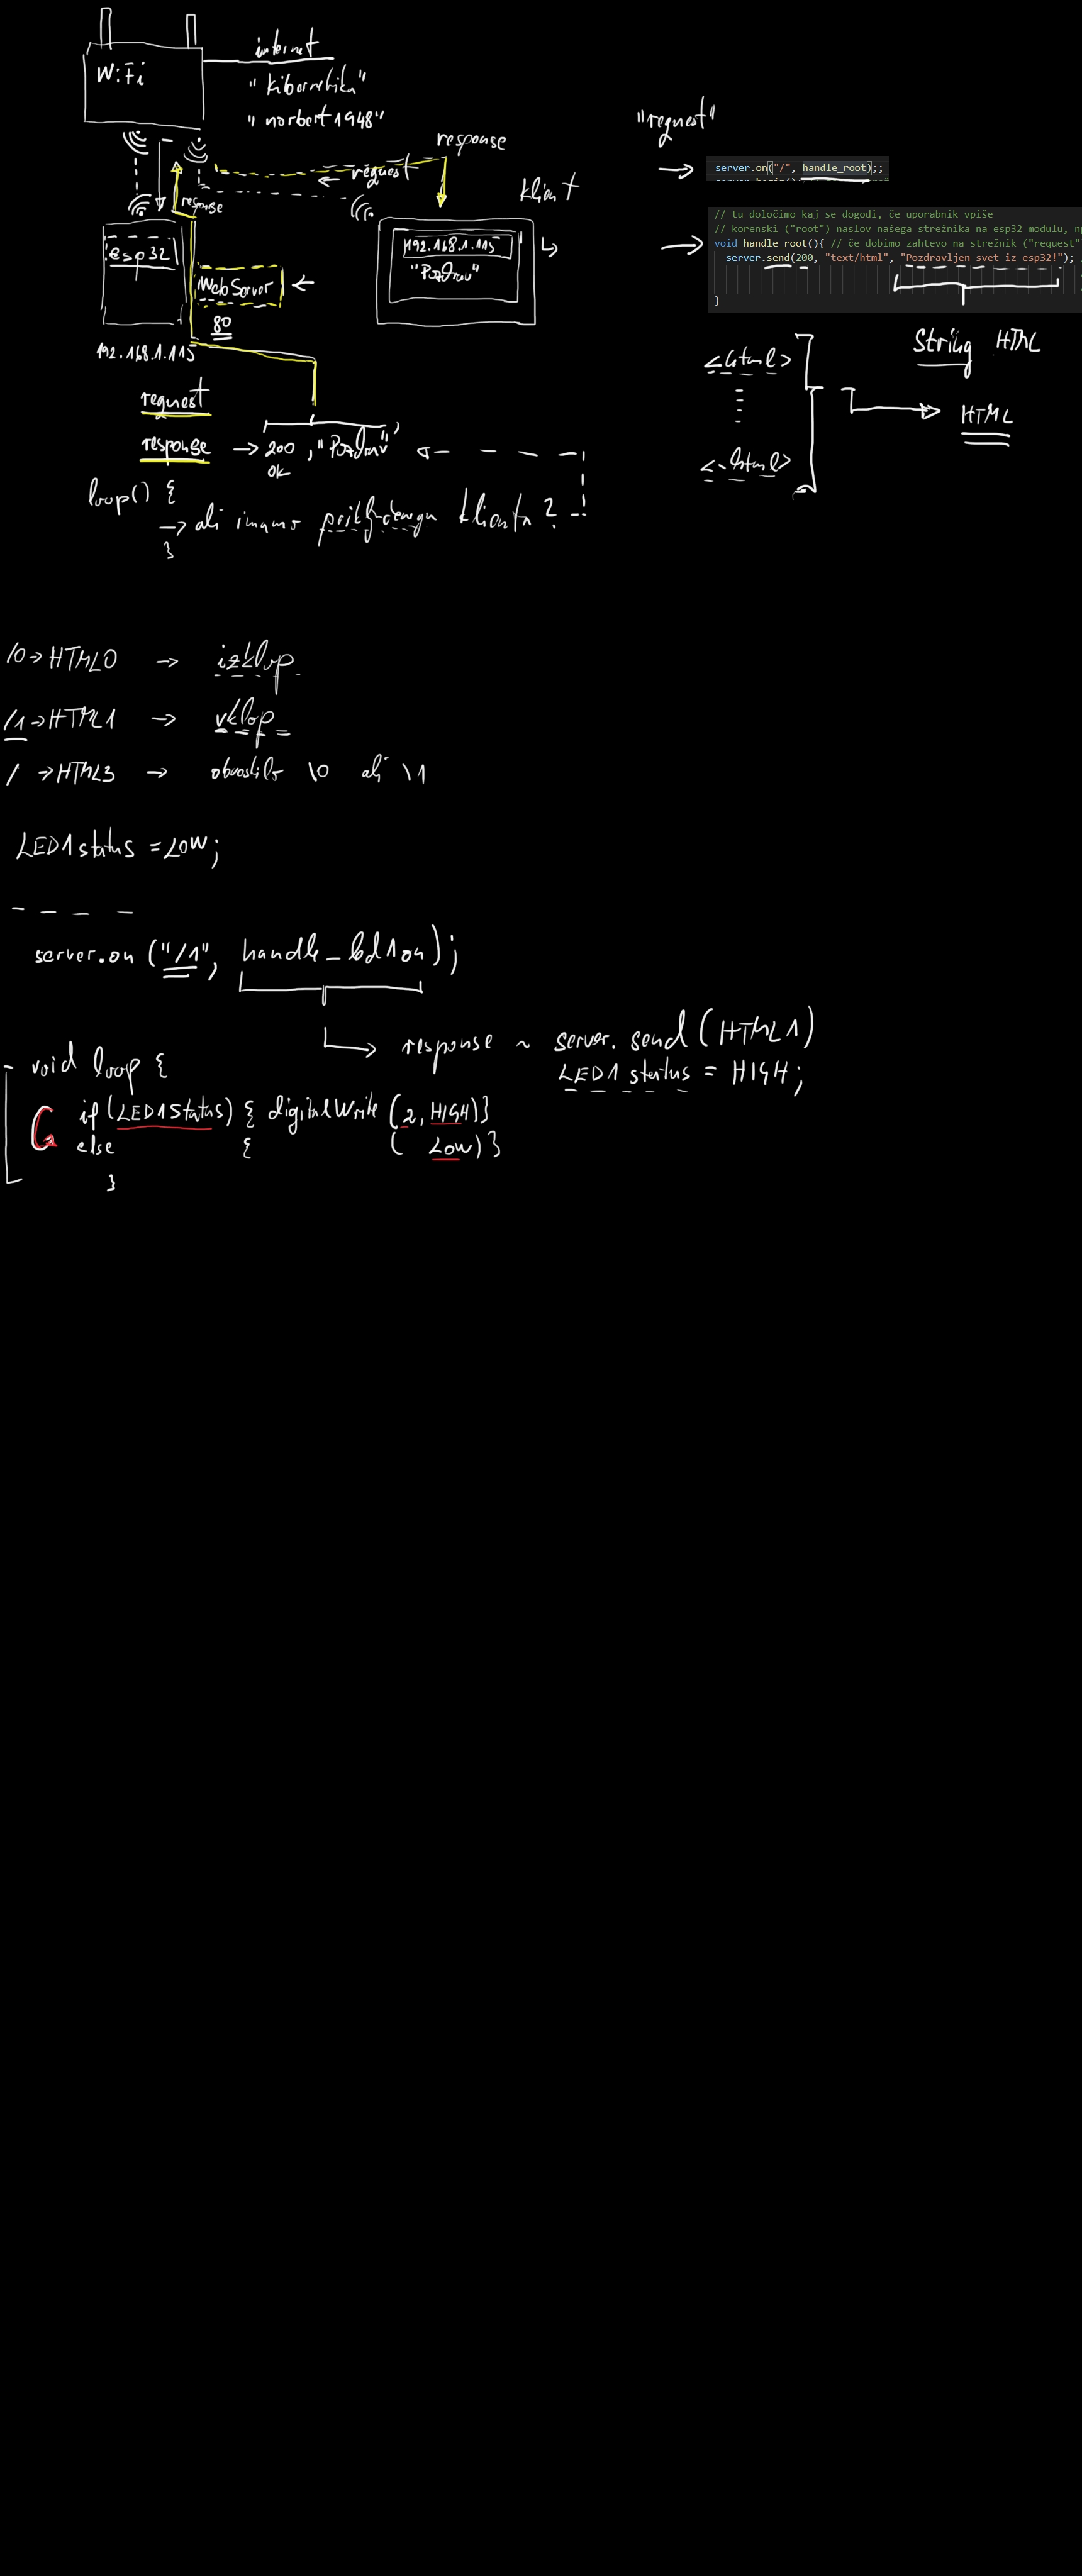 WiFi
internet
"kibernetika"
"norbert1948"
response
request
response
klient
esp32
WebServer
80
192.168.1.115
192.168.1.115
"Pozdrav"
request
response → 200, "Pozdrav"
OK
loop() {
→ ali imamo priključenega klienta?
}
"request"
→ server.on("/", handle_root);;
// tu določimo kaj se dogodi, če uporabnik vpiše
// korenski ("root") naslov našega strežnika na esp32 modulu, np
→ void handle_root(){ // če dobimo zahtevo na strežnik ("request"
server.send(200, "text/html", "Pozdravljen svet iz esp32!");
}
String HTML
<html>
HTML
<-html>
/0 → HTML0 → izklop
/1 → HTML1 → vklop
/ → HTML3 → obvestilo \0 ali \1
LED1status = LOW;
server.on ("/1", handle_led1on);
response ~ server.send(HTML1)
LED1status = HIGH;
void loop {
if (LED1Status) { digitalWrite (2, HIGH)}
else { ( LOW) }
}